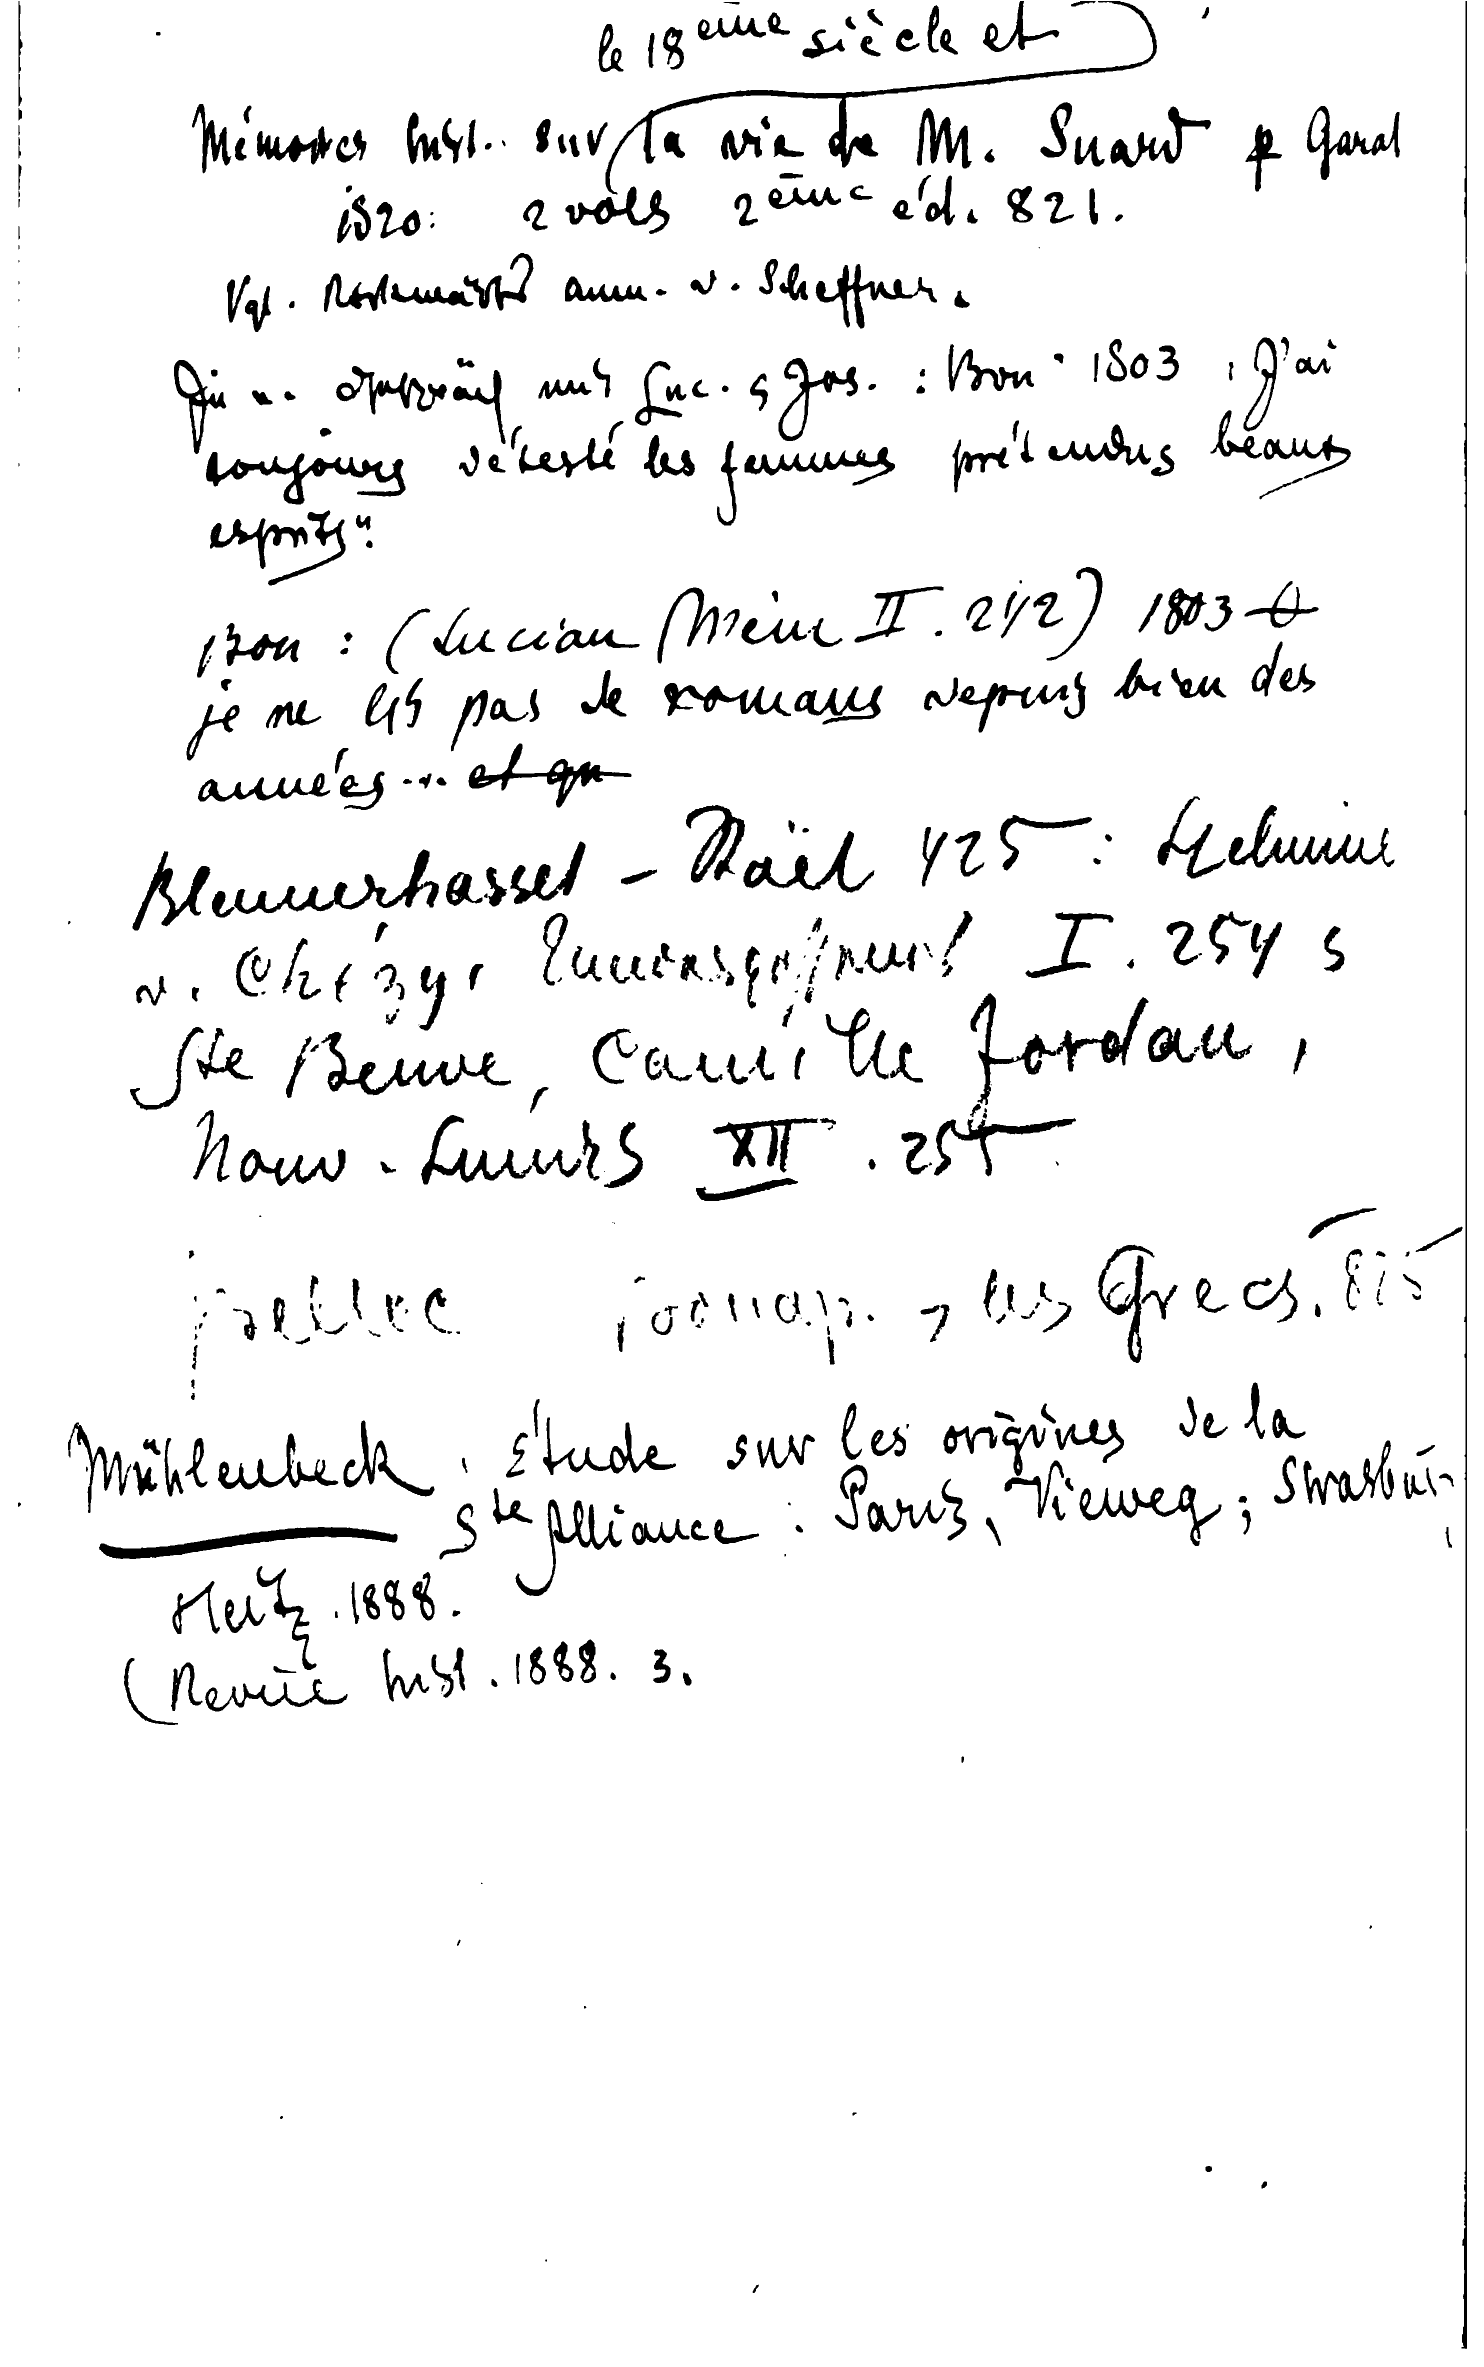 le 18ème siècle et
Mémoires hist. sur la vie de M. Suard p Garat
1820: 2 vols 2ème éd. 821.
Vgl. anm. v. Scheffner.
In e. Gespräch mit Luc. & Jos. : Bon 1803, J'ai
toujours détesté les femmes prétendus beaux
esprits".
Bon : (Lucian Mém II. 242) 1803
je ne lis pas de romans depuis bien des
années... et qu
Blennerhasset - Staël 425 : Helmine
v. Chézy, I. 254 &
Ste Beuve, Camille Jordan,
Nouv. Lundis XII . 255
les Grecs. 825
Mühlenbeck, Étude sur les origines de la
Ste Alliance : Paris, Vieweg ; Strasbur
Heitz. 1888.
(Revue hist. 1888. 3.